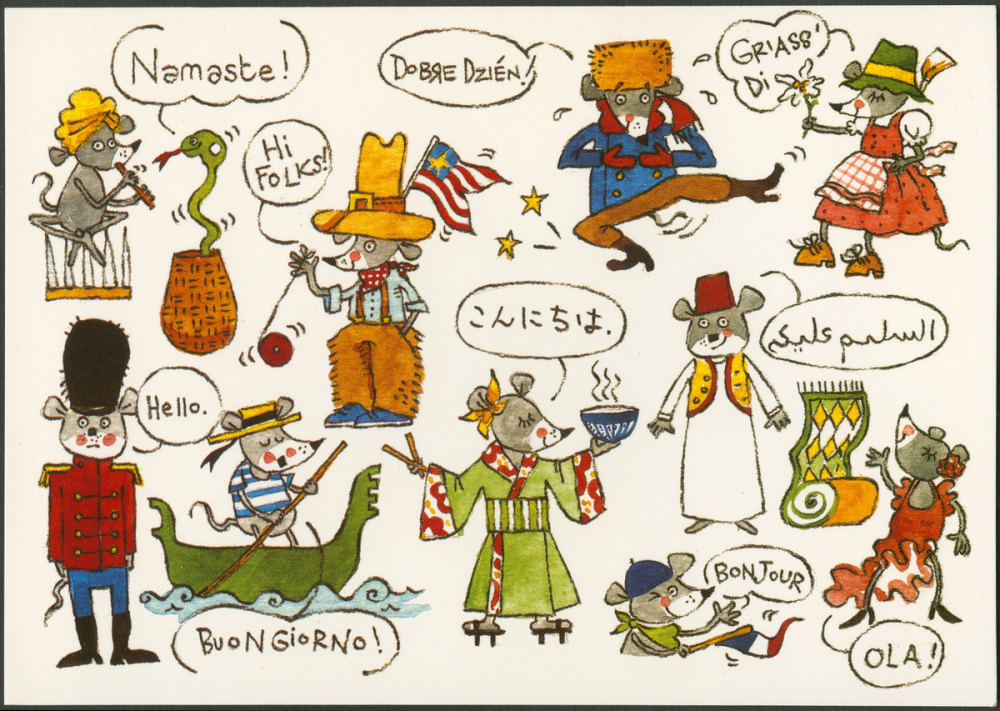 Namaste!
DOBRE DZIÉN!
GRIASS'
DI
Hi
FOLKS!
こんにちは.
السليم عليكم
Hello.
BUONGIORNO!
BONJOUR
OLA!